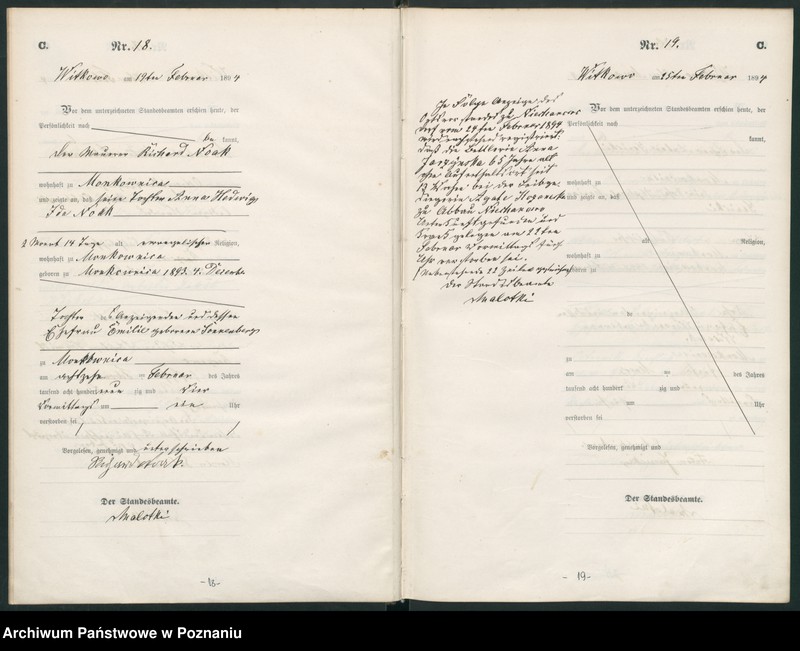 C.
Nr. 18.
Witkowo am 19ten Februar 1894
Vor dem unterzeichneten Standesbeamten erschien heute, der
Persönlichkeit nach
be kannt,
der Maurer Richard Noak
wohnhaft zu Monkownica
und zeigte an, daß seine Tochter Anna Hedwig
Ida Noak
2 Monat 14 Tage alt evangelischer Religion,
wohnhaft zu Monkownica
geboren zu Monkownica 1893. 4. Dezember
Tochter des Anzeigenden und dessen
Ehefrau Emilie geborene Sonnenberg
zu Monkownica
am achtzehn ten Februar des Jahres
tausend acht hundert neun zig und vier
Vormittags um ein Uhr
verstorben sei
Vorgelesen, genehmigt und unterschrieben
Der Standesbeamte.
Malotki
- 18 -
Nr. 19.
C.
Witkowo am 25ten Februar 1894
Vor dem unterzeichneten Standesbeamten erschien heute, der
Persönlichkeit nach
kannt,
wohnhaft zu
und zeigte an, daß
alt Religion,
wohnhaft zu
geboren zu
zu
am ten des Jahres
tausend acht hundert zig und
um Uhr
verstorben sei
Vorgelesen, genehmigt und
In Folge Anzeige des
Ortsvorstandes zu Niechanowo
vom 24ten Februar 1894
wird nachstehend registrirt
daß die Bettlerin Anna
65 Jahre alt
ohne Aufenthaltsort seit
bei der
Agate
zu Abbau Niechanowo
Unterkunft gefunden und
krank gelegen am 22ten
Februar Vormittags fünf
Uhr verstorben sei.
Der Standesbeamte
Malotki
Der Standesbeamte.
- 19 -
Archiwum Państwowe w Poznaniu